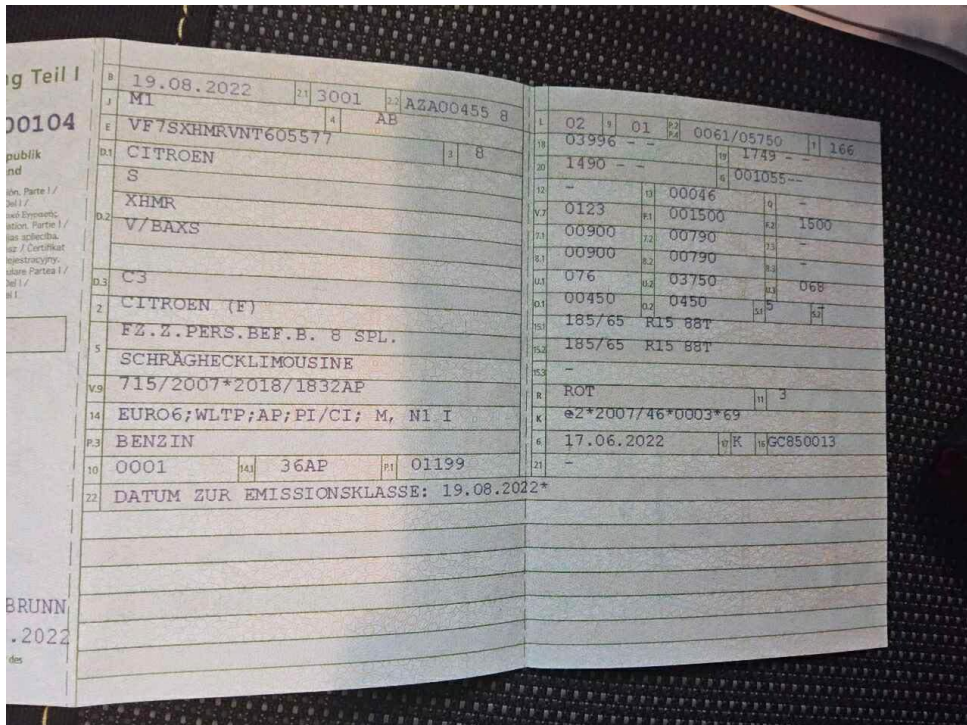 g Teil I
00104
publik
nd
ión. Parte I /
Del I /
ation. Partie I /
Del I /
BRUNN
.2022
des
B 19.08.2022 2.1 3001 2.2 AZA00455 8
J M1 4 AB
E VF7SXHMRVNT605577 3 8
D.1 CITROEN
D.2 S
XHMR
V/BAXS
D.3 C3
2 CITROEN (F)
5 FZ.Z.PERS.BEF.B. 8 SPL.
SCHRÄGHECKLIMOUSINE
V.9 715/2007*2018/1832AP
14 EURO6;WLTP;AP;PI/CI; M, N1 I
P.3 BENZIN
10 0001 14.1 36AP P.1 01199
22 DATUM ZUR EMISSIONSKLASSE: 19.08.2022*
L 02 9 01 P.2 P.4 0061/05750 T 166
18 03996 - - 19 1749 - -
20 1490 - - G 001055--
12 - 13 00046 Q -
V.7 0123 F.1 001500 F.2 1500
7.1 00900 7.2 00790 7.3 -
8.1 00900 8.2 00790 8.3 -
U.1 076 U.2 03750 U.3 068
O.1 00450 O.2 0450 S.1 5 S.2
15.1 185/65 R15 88T
15.2 185/65 R15 88T
15.3 -
R ROT 11 3
K e2*2007/46*0003*69
6 17.06.2022 17 K 16 GC850013
21 -